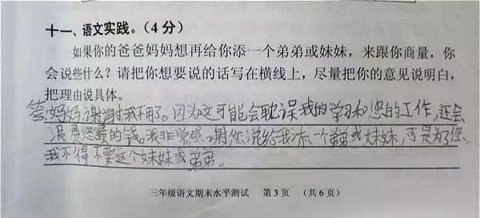 十一、语文实践。(4分)
如果你的爸爸妈妈想再给你添一个弟弟或妹妹,来跟你商量,你
会说些什么?请把你想要说的话写在横线上,尽量把你的意见说明白,
把理由说具体。
答:妈妈谢谢我不用了。因为这可能会耽误我的学习和您的工作,还会
浪费您的钱。我非常感谢您说给我添一个弟弟或妹妹,可是为了您
我不得不要这个妹妹或弟弟。
三年级语文期末水平测试 第3页 (共6页)